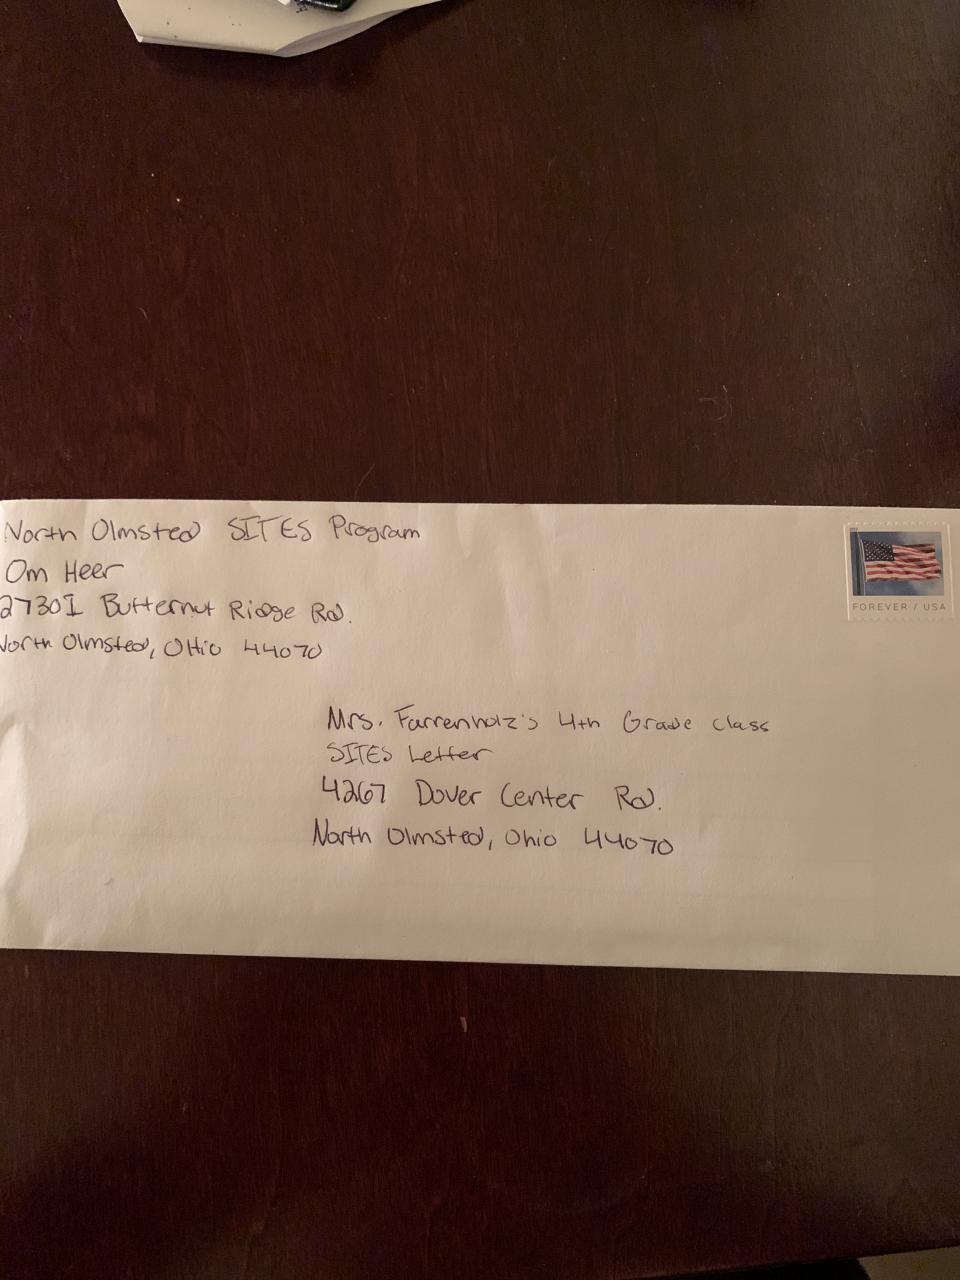 North Olmsted SITES Program
Om Heer
27301 Butternut Ridge Rd.
North Olmsted, OHio 44070
FOREVER / USA
Mrs. Farrenholz's 4th Grade class
SITES Letter
4267 Dover Center Rd.
North Olmsted, Ohio 44070